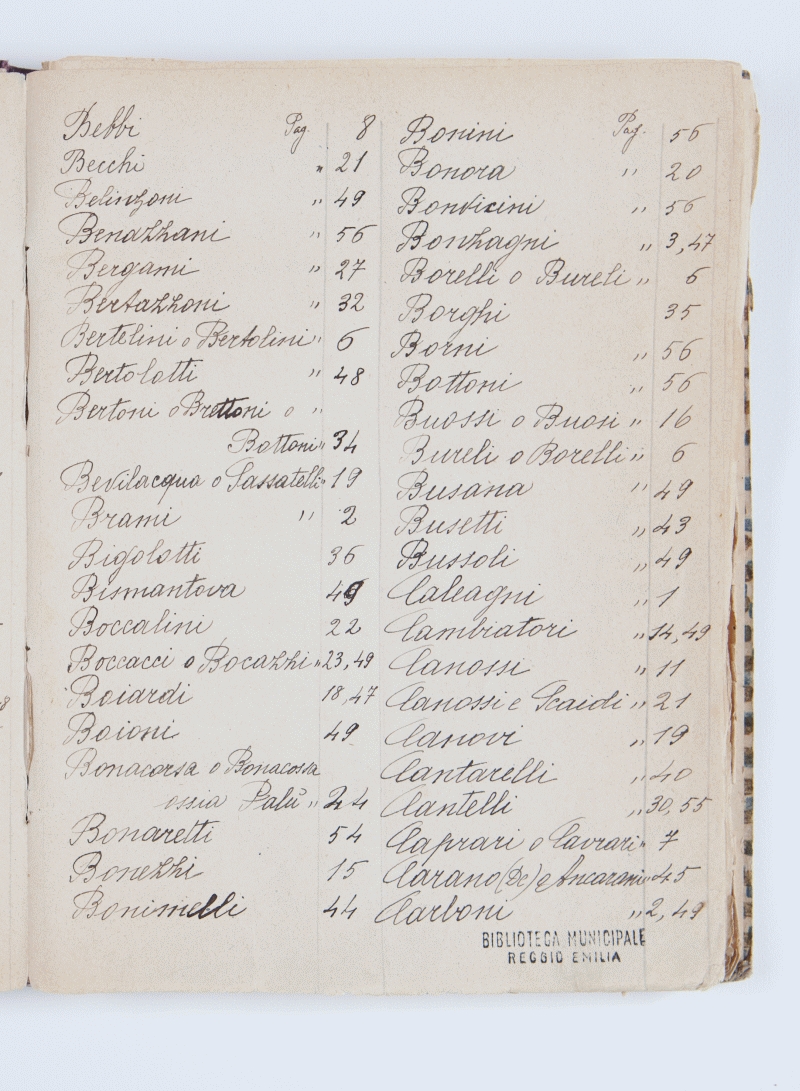 Bebbi Pag. 8
Becchi " 21
Belinzoni " 49
Benazzani " 56
Bergami " 27
Bertazzoni " 32
Bertelini o Bertolini " 6
Bertolotti " 48
Bertoni o Brettoni o "
Bottoni " 34
Bevilacqua o Sassatelli " 19
Brami " 2
Bigolotti 36
Bismantova 49
Boccalini 22
Boccacci o Bocazzi " 23, 49
Boiardi 18, 47
Boioni 49
Bonacorsa o Bonacossa
ossia Palù " 24
Bonaretti 54
Bonezzi 15
Bonimelli 44
Bonini Pag. 56
Bonora " 20
Bonvicini " 56
Bonzagni " 3, 47
Borelli o Bureli " 6
Borghi 35
Borni " 56
Bottoni " 56
Buossi o Buosi " 16
Bureli o Borelli " 6
Busana " 49
Busetti " 43
Bussoli " 49
Calcagni " 1
Cambiatori " 14, 49
Canossi " 11
Canossi e Scaidi " 21
Canovi " 19
Cantarelli " 40
Cantelli " 30, 55
Caprari o Cavrari " 7
Carano (De) e Ancarani " 45
Carboni " 2, 49
BIBLIOTECA MUNICIPALE
REGGIO EMILIA